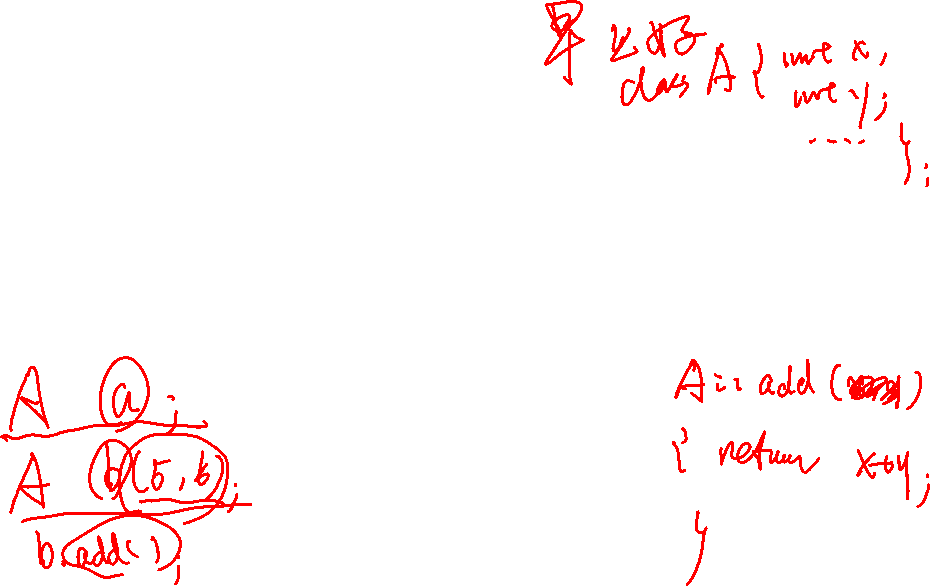 早上好
class A { int x,
int y;
.... };
A a;
A b(5,6);
b.add();
A::add( )
{ return x+y;
}